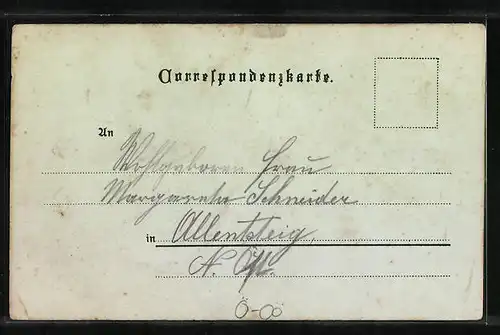 Correspondenzkarte.
An
Wohlgeboren Frau
Margareta Schneider
in Allentsteig,
N. Öst.
Ö-OÖ